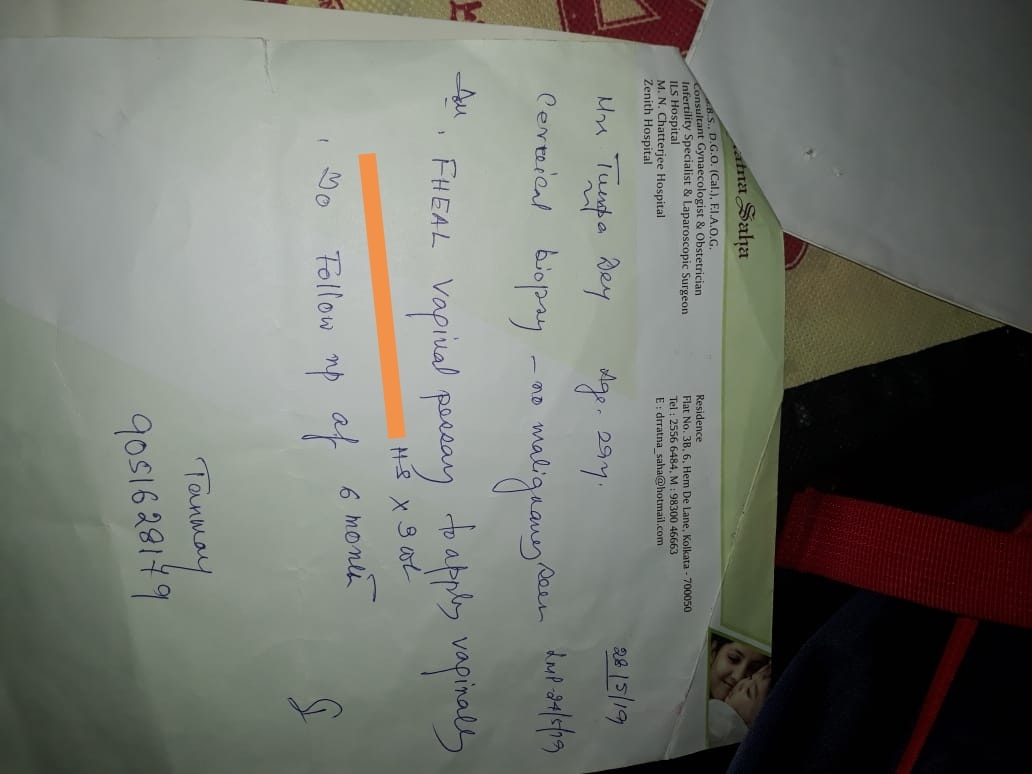 atna Saha
B.S., D.G.O. (Cal.), F.I.A.O.G.
Consultant Gynaecologist & Obstetrician
Infertility Specialist & Laparoscopic Surgeon
ILS Hospital
M. N. Chatterjee Hospital
Zenith Hospital
Residence
Flat No. 3B, 6, Hem De Lane, Kolkata - 700050
Tel : 2556 6484, M : 98300 46663
E : drratna_saha@hotmail.com
28/5/19
Tumpa Dey Age. 29y.
Cervical biopsy – no malignancy seen LMP-24/5/19
FHEAL Vaginal pessary to apply vaginally
HS X
Follow up af 6 month
Tanmay
9051628179